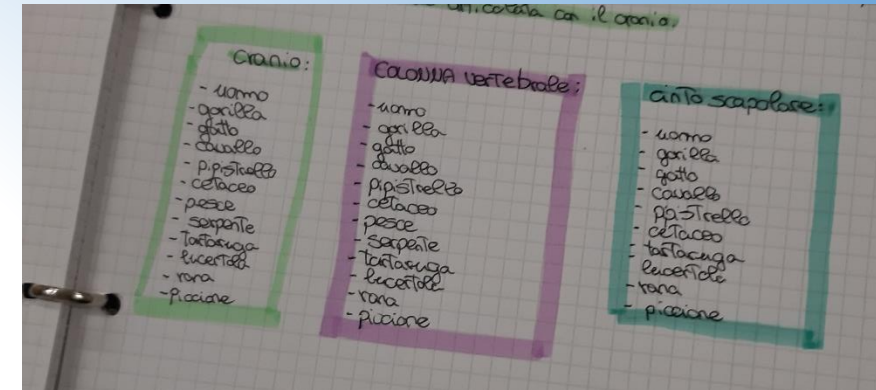 con il cranio.
cranio:
- uomo
- gorilla
- gatto
- cavallo
- pipistrello
- cetaceo
- pesce
- serpente
- Tartaruga
- lucertola
- rana
- piccione
COLONNA verTebrale:
- uomo
- gorilla
- gatto
- cavallo
- pipistrello
- cetaceo
- pesce
- serpente
- tartaruga
- lucertola
- rana
- piccione
cinTo scapolare:
- uomo
- gorilla
- gatto
- cavallo
- cetaceo
- tartaruga
lucertola
- rana
- piccione